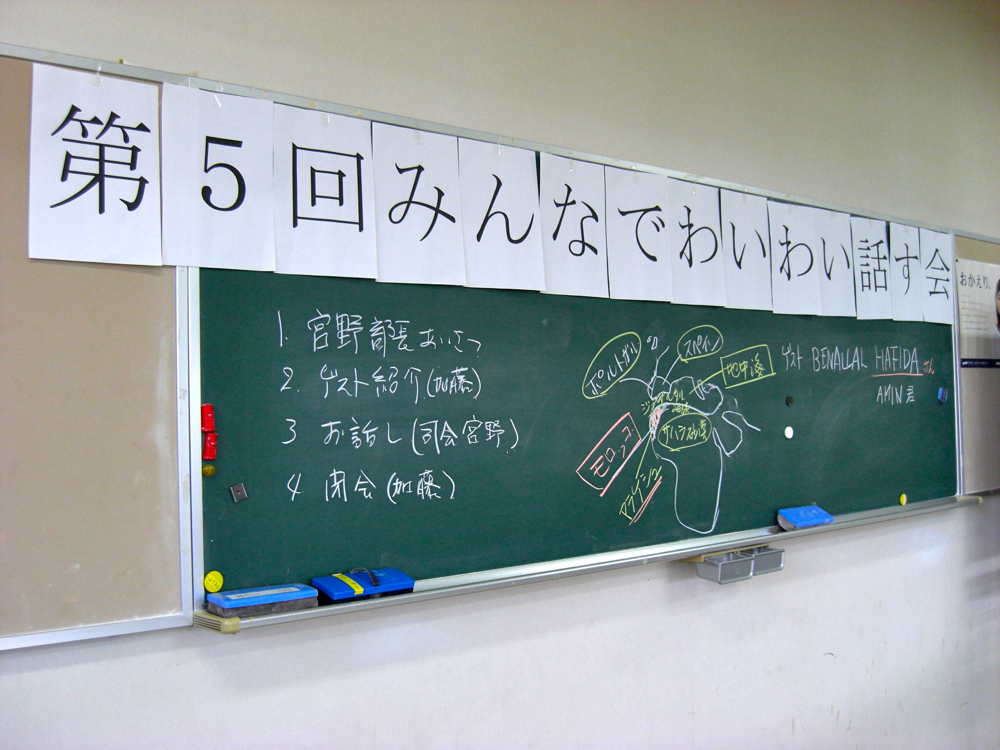 第5回みんなでわいわい話す会
1. 宮野部長あいさつ
2. ゲスト紹介(加藤)
3 お話し(司会宮野)
4. 閉会(加藤)
ポルトガル
スペイン
地中海
ジブラルタル
海峡
サハラ砂漠
モロッコ
ゲスト BENALLAL HAFIDA さん
AMIN 君
おかえり。